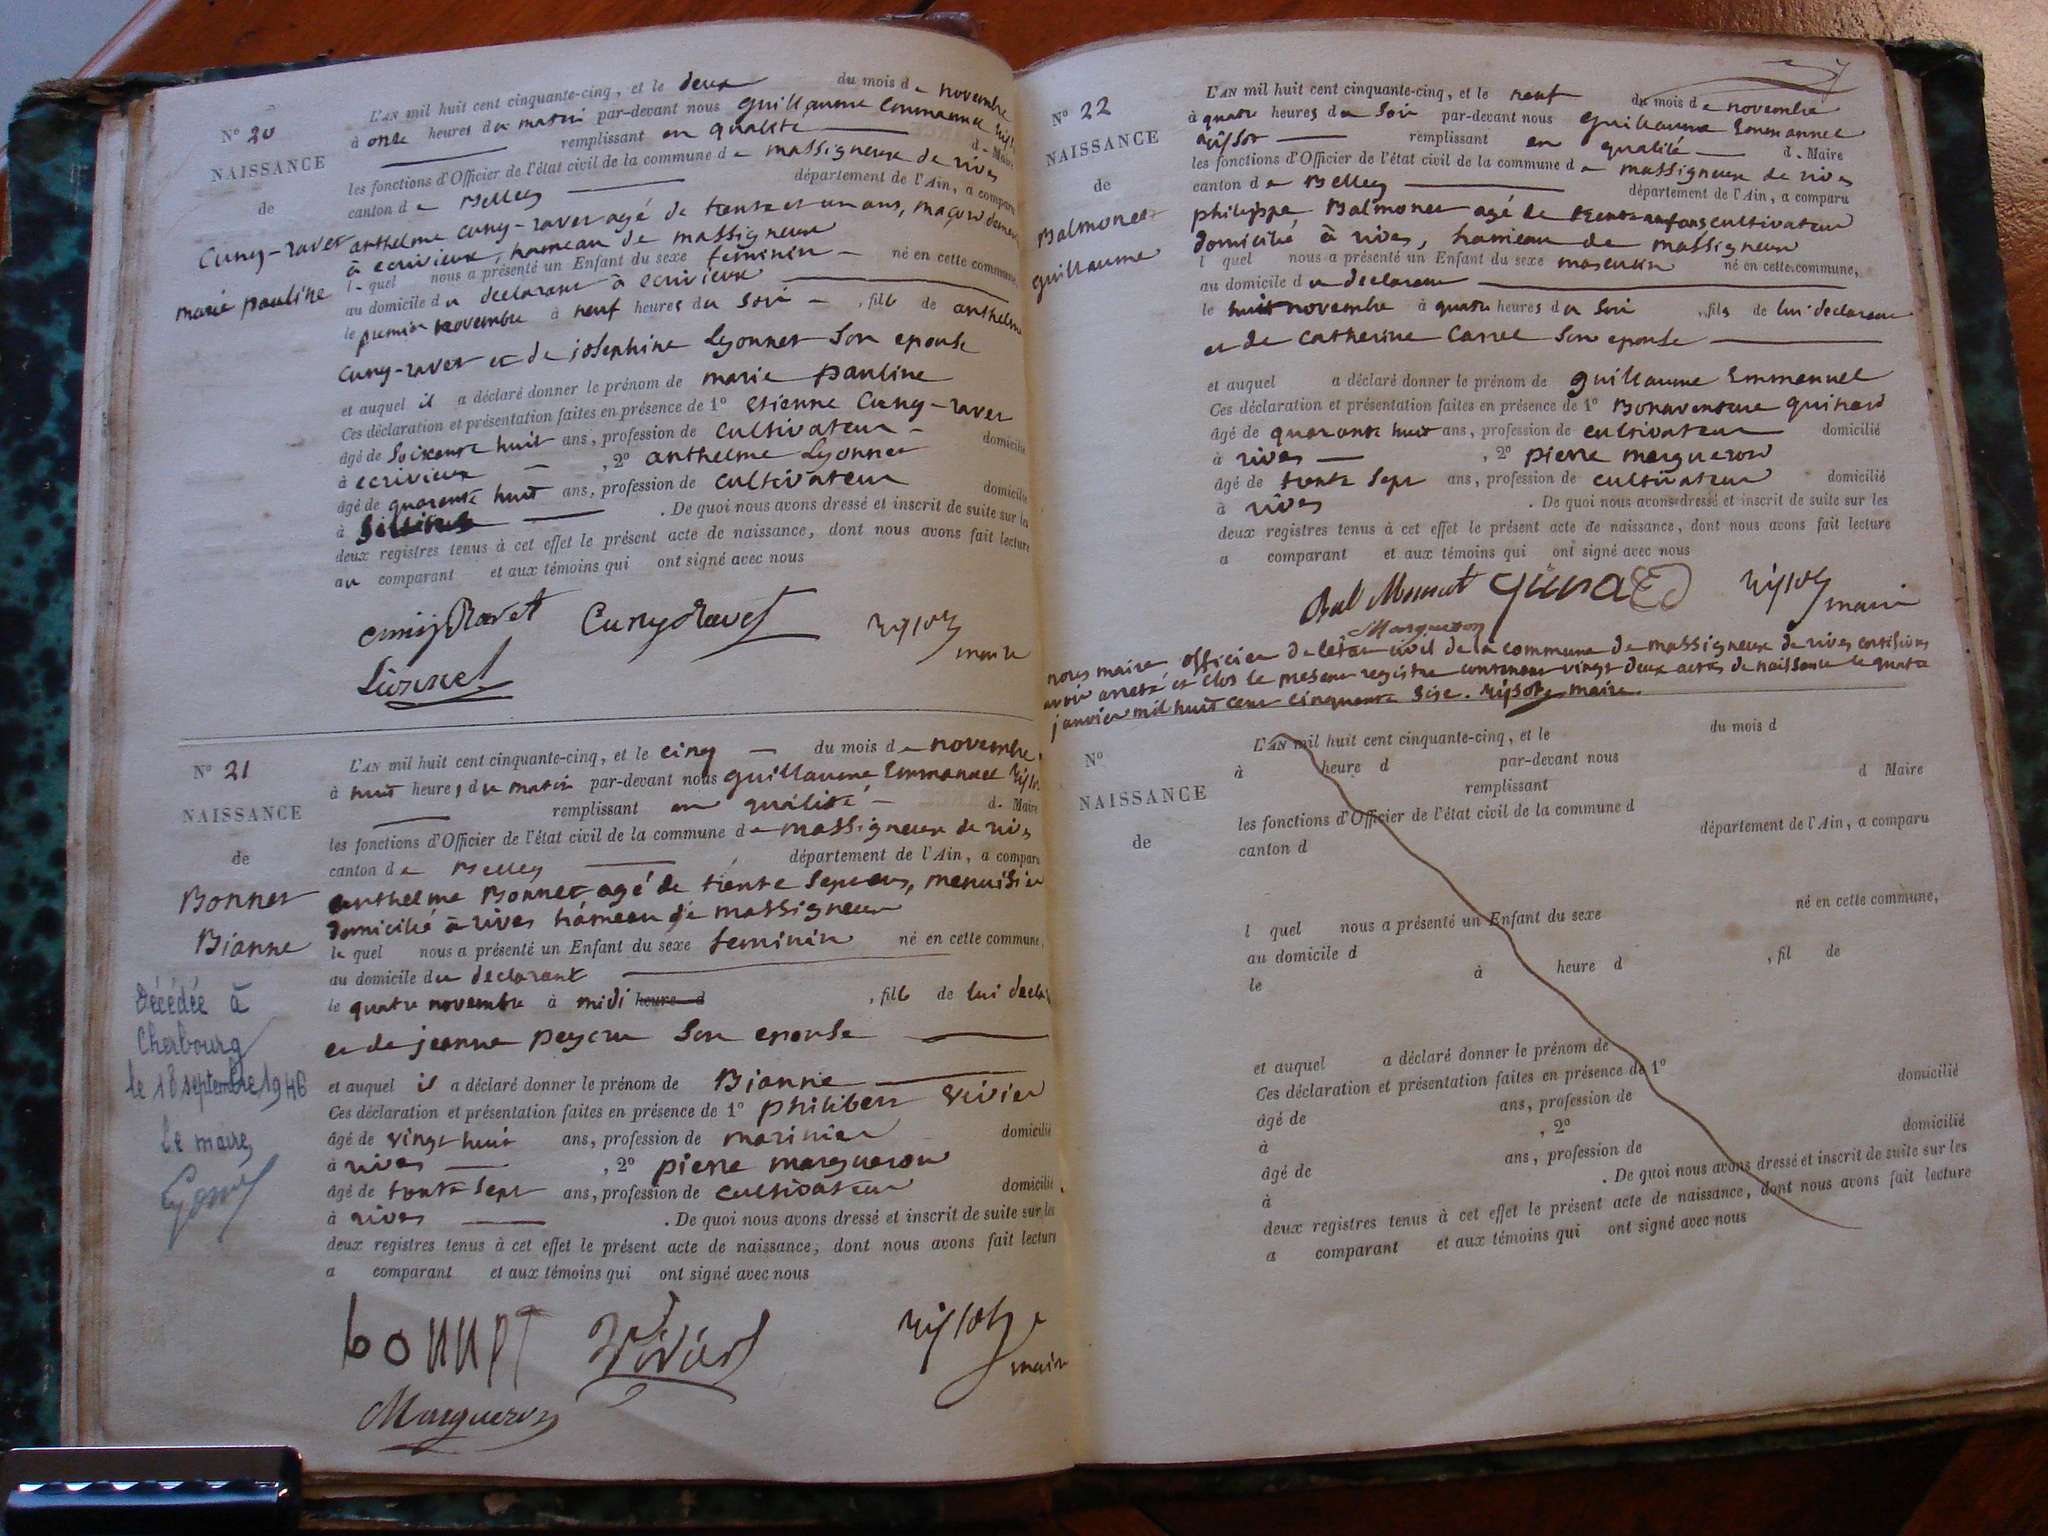 N° 20
NAISSANCE
de
Cuny-ravet
marie pauline
L'AN mil huit cent cinquante-cinq, et le deux du mois de novembre
à onze heures du matin par-devant nous guillaume emmanuel
remplissant en qualité de Maire
les fonctions d'Officier de l'état civil de la commune de massigneux de rives
canton de Belley département de l'Ain, a comparu
anthelme cuny-ravet agé de trente et un ans, maçon
à ecrivieux, hameau de massigneux
l quel nous a présenté un Enfant du sexe feminin né en cette commune,
au domicile du declarant à ecrivieux
le premier novembre à neuf heures du soir, fille de anthelme
cuny-ravet et de josephine Lyonnet son epouse
et auquel il a déclaré donner le prénom de marie pauline
Ces déclaration et présentation faites en présence de 1° etienne Cuny-ravet
âgé de soixante huit ans, profession de cultivateur domicilié
à ecrivieux, 2° anthelme Lyonnet
âgé de quarante huit ans, profession de cultivateur domicilié
à . De quoi nous avons dressé et inscrit de suite sur les
deux registres tenus à cet effet le présent acte de naissance, dont nous avons fait lecture
au comparant et aux témoins qui ont signé avec nous
Cuny Ravet
maire
N° 21
NAISSANCE
de
Bonnet
Bianne
Décédée à
Cherbourg
le 18 septembre 1946
le maire,
L'AN mil huit cent cinquante-cinq, et le cinq du mois de novembre
à huit heures du matin par-devant nous guillaume Emmanuel
remplissant en qualité de Maire
les fonctions d'Officier de l'état civil de la commune de massigneux de rives
canton de Belley département de l'Ain, a comparu
anthelme Bonnet agé de trente sept ans, menuisier
domicilié à rives hameau de massigneux
le quel nous a présenté un Enfant du sexe feminin né en cette commune,
au domicile du declarant
le quatre novembre à midi heure d, fille de lui
et de jeanne peycru son epouse
et auquel il a déclaré donner le prénom de Bianne
Ces déclaration et présentation faites en présence de 1° philibert vivier
âgé de vingt huit ans, profession de marinier domicilié
à rives, 2° pierre margueron
âgé de trente sept ans, profession de cultivateur domicilié
à rives . De quoi nous avons dressé et inscrit de suite sur les
deux registres tenus à cet effet le présent acte de naissance, dont nous avons fait lecture
a comparant et aux témoins qui ont signé avec nous
bonnet
maire
Margueron
N° 22
NAISSANCE
de
Balmonet
guillaume
L'AN mil huit cent cinquante-cinq, et le neuf du mois de novembre
à quatre heures du soir par-devant nous guillaume Emmanuel
remplissant en qualité d. Maire
les fonctions d'Officier de l'état civil de la commune de massigneux de rives
canton de Belley département de l'Ain, a comparu
philippe Balmonet agé de cultivateur
domicilié à rives, hameau de massigneux
l quel nous a présenté un Enfant du sexe masculin né en cette commune,
au domicile du declarant
le huit novembre à quatre heures du soir, fils de lui declarant
et de catherine Carrel son epouse
et auquel a déclaré donner le prénom de guillaume Emmanuel
Ces déclaration et présentation faites en présence de 1° Bonaventure guinard
âgé de quarante huit ans, profession de cultivateur domicilié
à rives, 2° pierre margueron
âgé de trente sept ans, profession de cultivateur domicilié
à rives . De quoi nous avons dressé et inscrit de suite sur les
deux registres tenus à cet effet le présent acte de naissance, dont nous avons fait lecture
a comparant et aux témoins qui ont signé avec nous
maire
Margueron
nous maire officier de létat civil de la commune de massigneux de rives certifions
avoir arreté et clos le present registre contenant vingt deux actes de naissance le quatre
janvier mil huit cent cinquante sise. maire.
N°
NAISSANCE
de
L'AN mil huit cent cinquante-cinq, et le du mois d
à heure d par-devant nous
remplissant d Maire
les fonctions d'Officier de l'état civil de la commune d
canton d département de l'Ain, a comparu
l quel nous a présenté un Enfant du sexe né en cette commune,
au domicile d
le à heure d , fil de
et auquel a déclaré donner le prénom de
Ces déclaration et présentation faites en présence de 1°
âgé de ans, profession de domicilié
à , 2°
âgé de ans, profession de domicilié
à . De quoi nous avons dressé et inscrit de suite sur les
deux registres tenus à cet effet le présent acte de naissance, dont nous avons fait lecture
a comparant et aux témoins qui ont signé avec nous